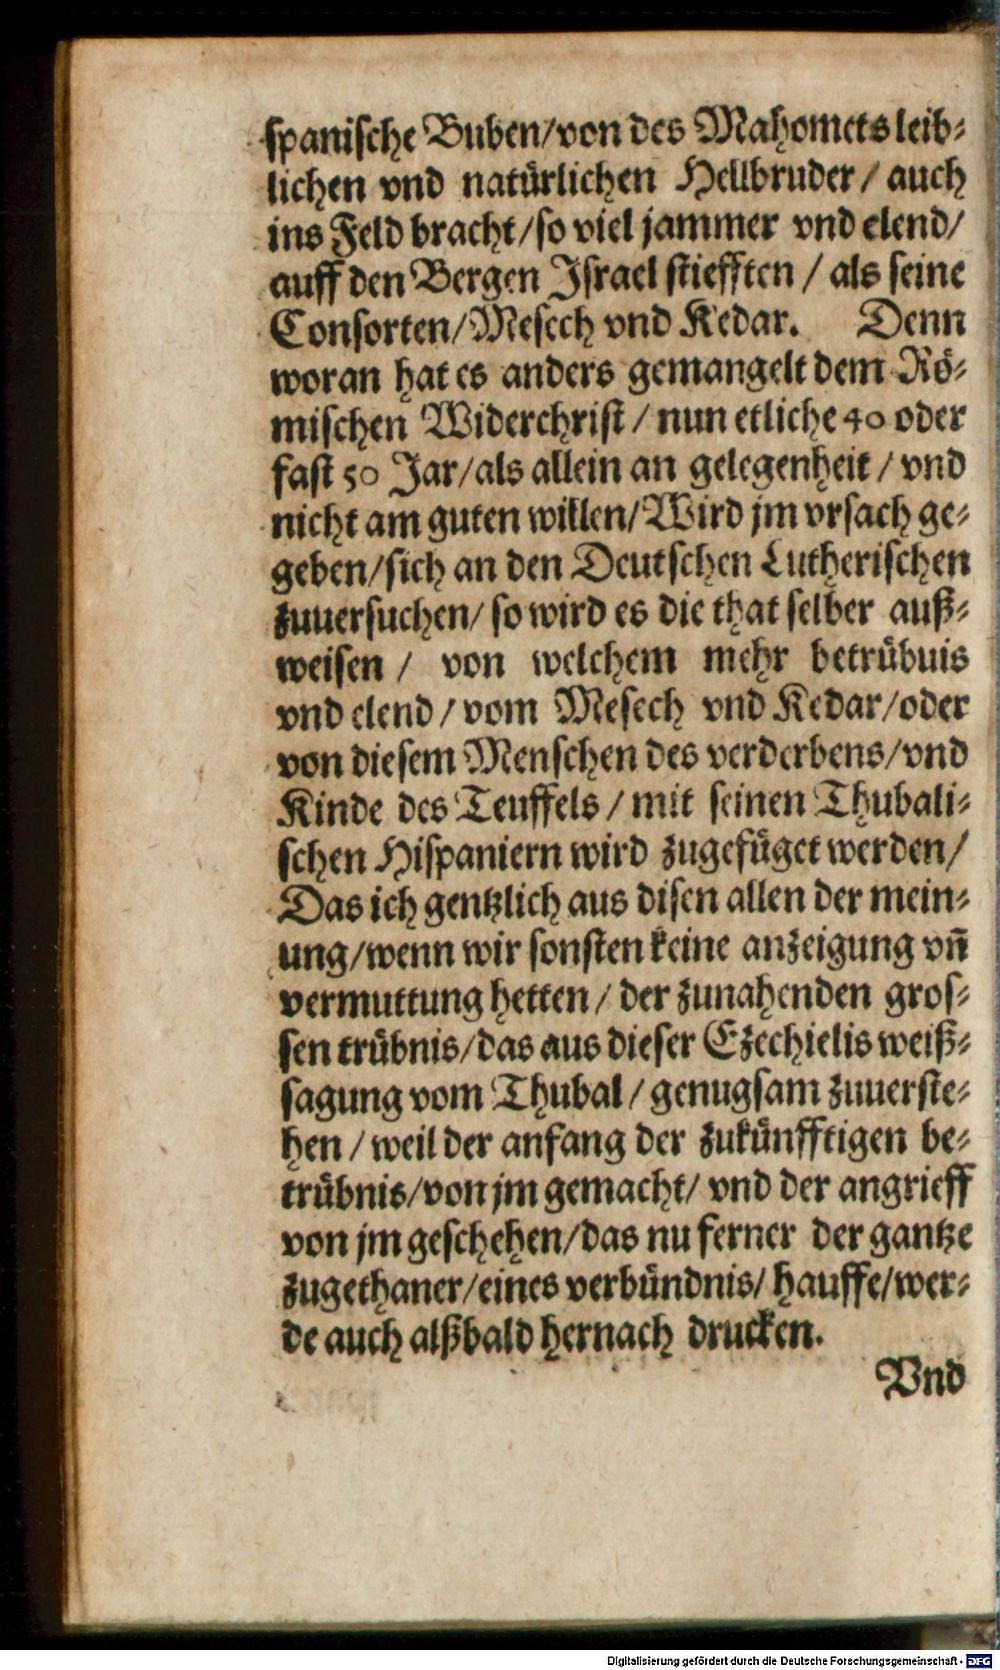 spanische Buben/von des Mahomets leib⸗
lichen vnd natürlichen Hellbruder / auch
ins Feld bracht/so viel jammer vnd elend/
auff den Bergen Israel stiefften / als seine
Consorten/Mesech vnd Kedar. Denn
woran hat es anders gemangelt dem Rö⸗
mischen Widerchrist / nun etliche 40 oder
fast 50 Jar/als allein an gelegenheit / vnd
nicht am guten willen/Wird jm vrsach ge⸗
geben/sich an den Deutschen Lutherischen
zuuersuchen/ so wird es die that selber auß⸗
weisen / von welchem mehr betrübuis
vnd elend / vom Mesech vnd Kedar/oder
von diesem Menschen des verderbens/vnd
Kinde des Teuffels / mit seinen Thubali⸗
schen Hispaniern wird zugefüget werden/
Das ich gentzlich aus disen allen der mein⸗
ung/wenn wir sonsten keine anzeigung vn̄
vermuttung hetten / der zunahenden gros⸗
sen trübnis/das aus dieser Ezechielis weiß⸗
sagung vom Thubal / genugsam zuuerste⸗
hen / weil der anfang der zukünfftigen be⸗
trübnis/von jm gemacht/ vnd der angrieff
von jm geschehen/das nu ferner der gantze
zugethaner/eines verbündnis/ hauffe/wer⸗
de auch alßbald hernach drucken.
Vnd
Digitalisierung gefördert durch die Deutsche Forschungsgemeinschaft - DFG